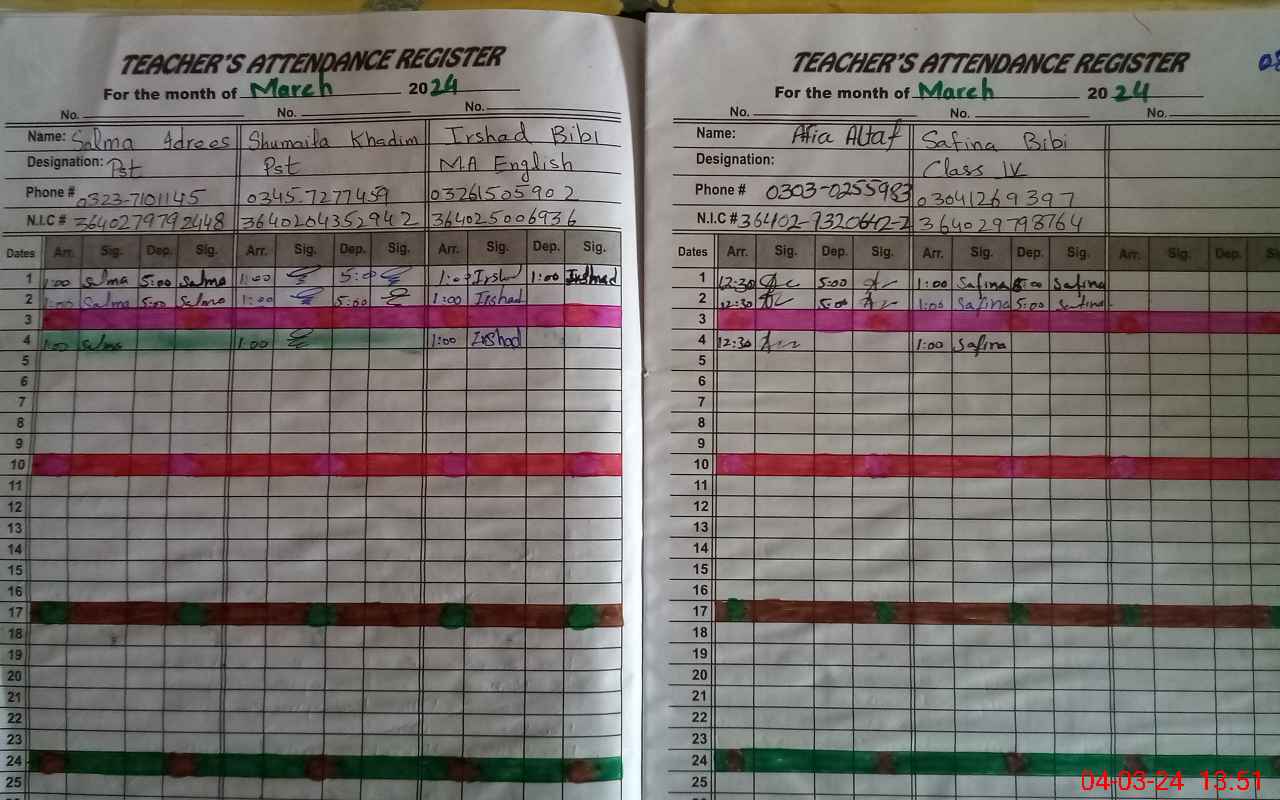 TEACHER'S ATTENDANCE REGISTER
For the month of March 2024
No. No. No.
Name: Salma Idrees Shumaila Khadim Irshad Bibi
Designation: Pst Pst M.A English
Phone # 0323-7101145 0345.7277459 03261505902
N.I.C # 3640279792448 3640204352942 364025006936
Dates Arr. Sig. Dep. Sig. Arr. Sig. Dep. Sig. Arr. Sig. Dep. Sig.
1 1:00 Salma 5:00 Salma 1:00 5:00 1:00 Irshad 1:00 Irshad
2 1:00 Salma 5:00 Salma 1:00 5:00 1:00 Irshad
3
4 1:00 Salma 1:00 1:00 Irshad
5
6
7
8
9
10
11
12
13
14
15
16
17
18
19
20
21
22
23
24
25
TEACHER'S ATTENDANCE REGISTER
For the month of March 2024
No. No. No.
Name: Afia Altaf Safina Bibi
Designation: Class IV
Phone # 0303-0255983 03041269397
N.I.C # 36402-7320642-2 364029798764
Dates Arr. Sig. Dep. Sig. Arr. Sig. Dep. Sig. Arr. Sig. Dep.
1 12:30 5:00 1:00 Safina 5:00 Safina
2 12:30 5:00 1:00 Safina 5:00 Safina
3
4 12:30 1:00 Safina
5
6
7
8
9
10
11
12
13
14
15
16
17
18
19
20
21
22
23
24
25
04-03-24 13.51